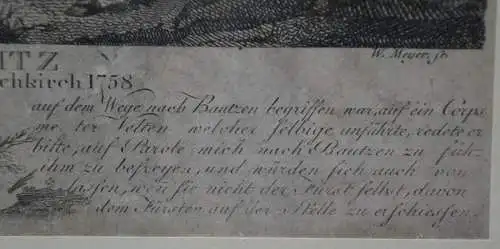 W. Meyer. fc.
ITZ
chkirch 1758
auf dem Wege nach Bautzen begriffen war, auf ein Corps
me ter Velten welcher selbige anführte, redete er
bitte, auf Parole mich nach Bautzen zu füh-
ihm zu befreyen, und würden sich auch von
lassen, wen sie nicht der Fürst selbst, davon
dem Fürsten auf der Stelle zu erschiessen.